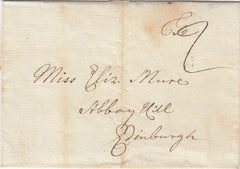 2
Miss Eliz. Mure
Abbay Hill
Edinburgh